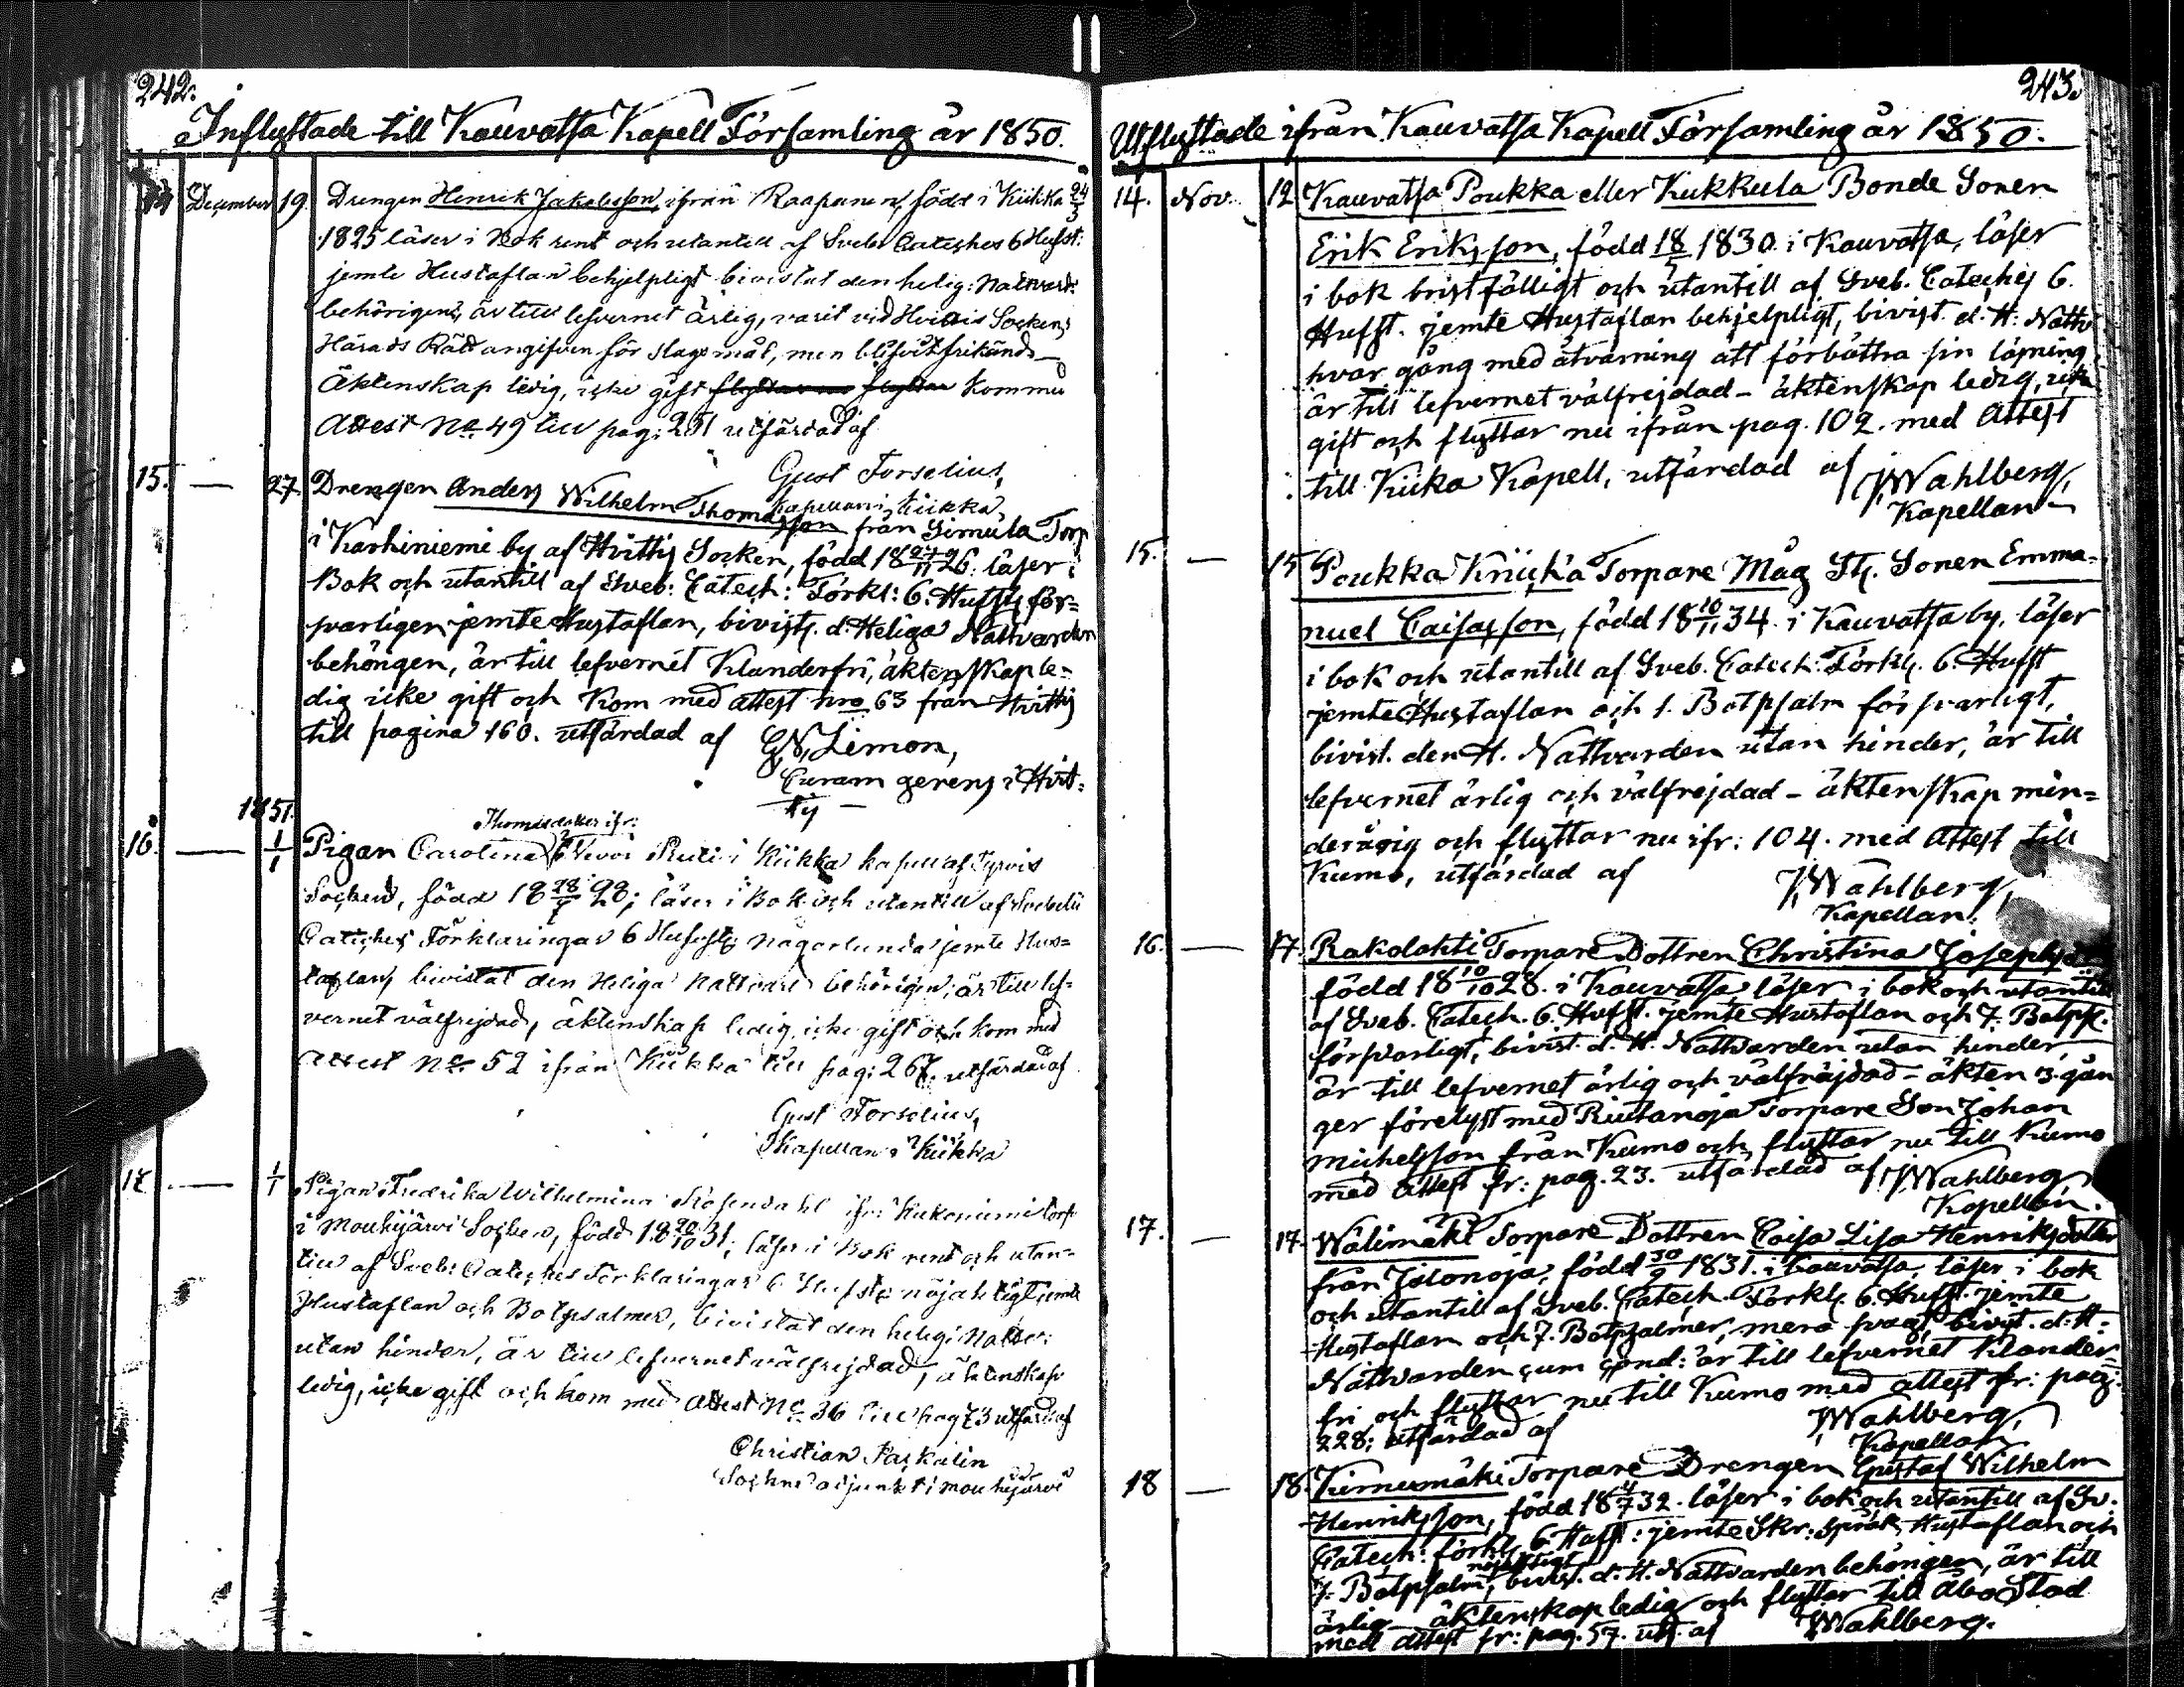 242.
Inflyttade till Kauvatsa Kapell Församling år 1850.
December 19. Drengen Henrik Jakobsson, ifrån Raapanen, född i Kiikka 24/3
1825 läser i Bok rent och utantill af Sveb: Cateches 6 Hufst:
jemte Hustaflan behjelpligt bivistat den helig: Nattvard:
behörigen, är till lefvernet ärlig, varit vid Hvittis Sockens
Härads Rätt angifven för slagsmål, men blifvit frikänd
Äktenskap ledig, icke gift flyttar kommer
Attest No 49 till pag: 251 utfärdad af
Gust Forselius,
Kapellan i Kiikka,
15. — 27. Drengen Anders Wilhelm Thomasson från Simula Torp
i Karhiniemi by af Hvittis Socken, född 18 24/11 26. läser i
Bok och utantill af Sveb: Catech: Förkl: 6. Hufst. för=
svarligen jemte Hustaflan, bivist. d. Heliga Nattvarden
behörigen, är till lefvernet Klanderfri, äktenskap le=
dig icke gift och kom med attest nro 63 från Hvittis
till pagina 160. utfärdad af G. N. Limon,
Curam gerens i Hvit=
tis —
1851.
Thomasdotter ifr:
16. — 1/1 Pigan Carolina i Kiikka kapell af Tyrvis
Socken, född 18 28/7 28; läser i Bok och utantill af Svebelii
Cateches Förklaringar 6 Hufvst: någorlunda jemte Hus=
taflan, bivistat den Heliga Nattvard behörigen, är till lef=
vernet välfrejdad, äktenskap ledig, icke gift och kom med
Attest No 52 ifrån Kiikka till pag: 267. utfärdad af
Gust Forselius,
Kapellan i Kiikka
17. — 1/1 Pigan Fredrika Wilhelmina Rosendahl ifr: torp
i Mouhijärvi Socken, född 18 20/10 31; läser i Bok rent och utan=
till af Sveb: Cateches Förklaringar 6 Hufst: nöjaktigt jemte
Hustaflan och Botpsalmer, bivistat den helig: Nattv:
utan hinder, är till lefvernet välfrejdad, äktenskap
ledig, icke gift och kom med Attest No 36 till pag 73 utfärd: af
Christian Paskalin
Sockne adjunkt i Mouhijärvi
243.
Utflyttade ifrån Kauvatsa Kapell Församling år 1850.
14. Nov. 12 Kauvatsa Poukka eller Kukkula Bonde Sonen
Erik Eriksson, född 18 1830 i Kauvatsa, läser
i bok bristfälligt och utantill af Sveb. Cateches 6.
Hufst. jemte Hustaflan behjelpligt, bivist. d. H. Nattv
hvar gång med åtvarning att förbättra sin läsning
är till lefvernet välfrejdad – äktenskap ledig, icke
gift och flyttar nu ifrån pag. 102. med Attest
till Kiika Kapell, utfärdad af J. Wahlberg,
Kapellan
15. — 15 Poukka Kriikka Torpare Måg St. Sonen Emma=
nuel Caisasson, född 18 10/11 34. i Kauvatsa by. läser
i bok och utantill af Sveb. Catech: Förkl. 6. Hufst
jemte Hustaflan och 1. Botpsalm försvarligt,
bivist. den H. Nattvarden utan hinder, är till
lefvernet ärlig och välfrejdad – äktenskap min=
derårig och flyttar nu ifr: 104. med Attest till
Kumo, utfärdad af J. Wahlberg,
Kapellan.
16. — 17. Rakolahti Torpare Dottren Christina Josephs
född 18 10/10 28. i Kauvatsa läser i bok och utantill
af Sveb. Catech. 6. Hufst. jemte Hustaflan och 7. Botps.
försvarligt, bivist. d. H. Nattvarden utan hinder,
är till lefvernet ärlig och välfräjdad – äkten 3. gån
ger förelyst med Riutanoja Torpare Son Johan
Michelsson från Kumo och flyttar nu till Kumo
med attest fr: pag. 23. utfärdad af J. Wahlberg
Kapellan.
17. — 17. Wälimäki Torpare Dottren Caisa Lisa Henriksdotter
från Jalonoja, född 30/9 1831. i Kauvatsa, läser i bok
och utantill af Sveb. Catech. Förkl. 6. Hufst. jemte
Hustaflan och 7. Botpsalmer, mera svagt, bivist. d. H.
Nattvarden cum cond: är till lefvernet Klander=
fri och flyttar nu till Kumo med attest fr: pag:
228; utfärdad af J. Wahlberg,
Kapellan
18 — 18. Kirnumäki Torpare Drengen Gustaf Wilhelm
Henriksson, född 18 4/7 32. läser i bok och utantill af Sv.
Catech: förkl. 6 Hufst: jemte Skr: Språk, Hustaflan och
7. Botpsalm, nöjaktigt bivist. d. H. Nattvarden behörigen, är till
ärlig – äktenskap ledig och flyttar till Åbo Stad
med attest fr: pag. 57. utf. af Wahlberg.